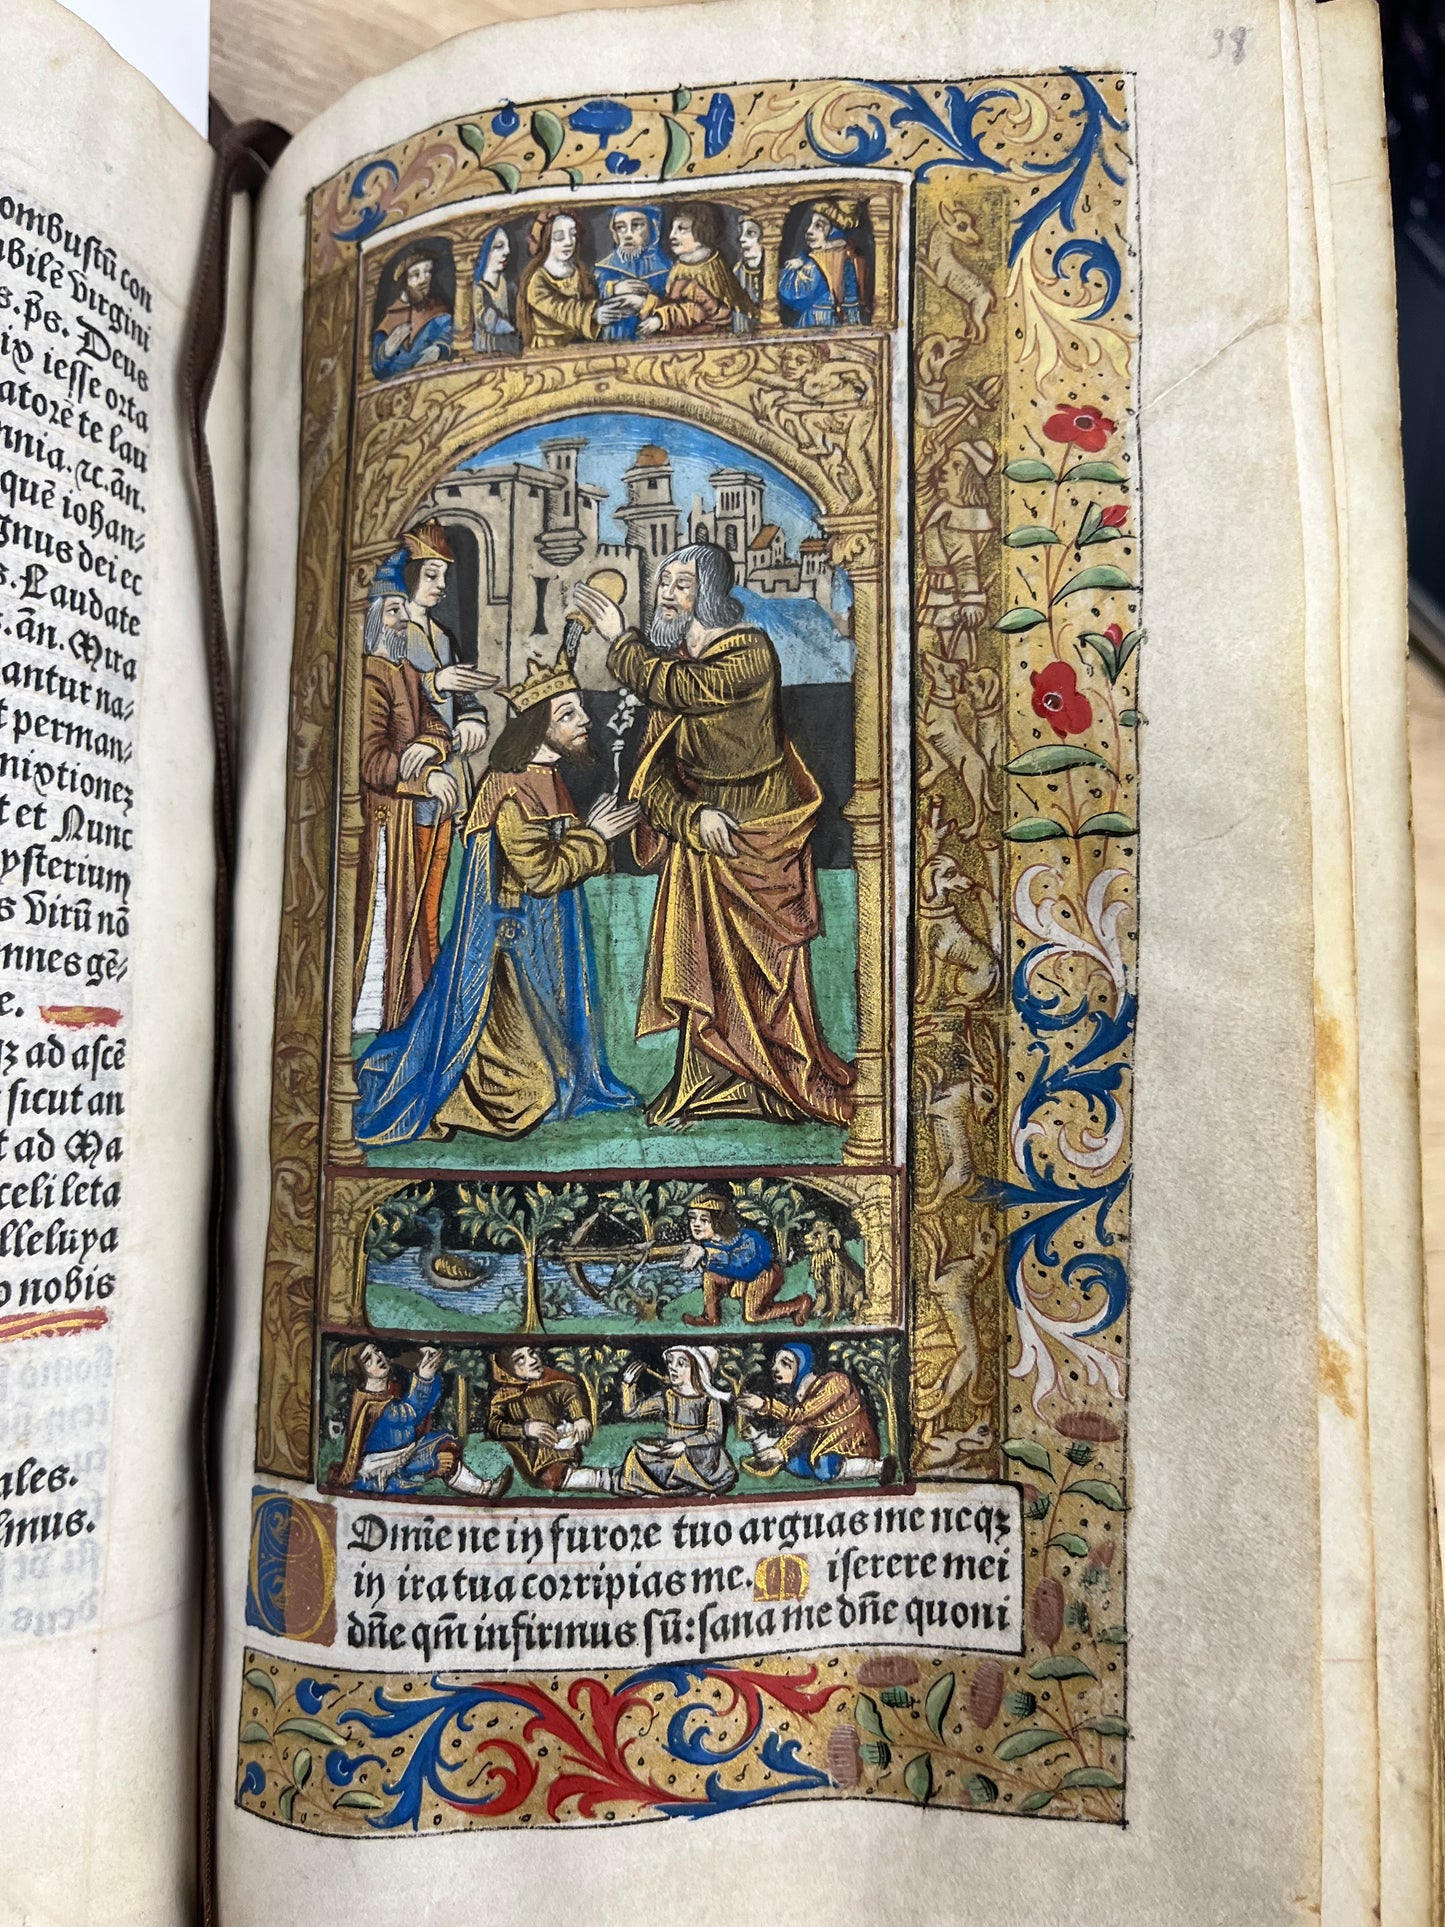 ombustū con
abilē virgini
s. p̄s. Deus
ix iesse orta
atorē te lau
nnia. ⁊c. ān.
quē iohan⸗
gnus dei ec
s. Laudate
s. ān. Mira
antur na⸗
t perman⸗
nixtionez
t et Nunc
ysterium
s virū nō
nnes gē⸗
e.
ꝫ ad ascē
sicut an
t ad Ma
celi leta
lleluya
o nobis
ales.
lmus.
98
Dn̄ie ne in furore tuo arguas me neqꝫ
in ira tua corripias me. Miserere mei
dn̄e qm̄ infirmus sū: sana me dn̄e quoni